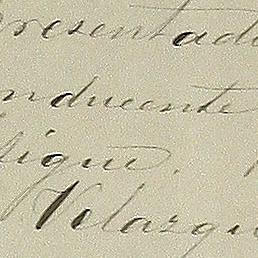 presentado
onducente
fique.
Velazqu